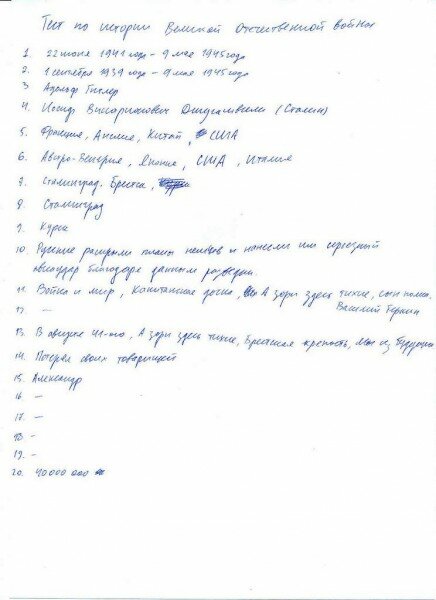 Тест по истории Великой Отечественной войны
1. 22 июня 1941 года - 9 мая 1945 года
2. 1 сентября 1939 года - 9 мая 1945 года
3 Адольф Гитлер
4. Иосиф Виссарионович Джугашвили (Сталин)
5. Франция, Англия, Китай, США
6. Австро-Венгрия, Япония, США, Италия
7. Сталинград. Брестск,
8. Сталинград
9. Курск
10 Русские раскрыли планы немцев и нанесли им серьезный
авиаудар благодаря данным разведки.
11. Война и мир, Капитанская дочка, А зори здесь тихие, сын полка.
Василий Теркин
12. —
13. В августе 44-го, А зори здесь тихие, Брестская крепость, Мы из будущего
14. Потеря своих товарищей
15. Александр
16 —
17. —
18 —
19. —
20. 40 000 000